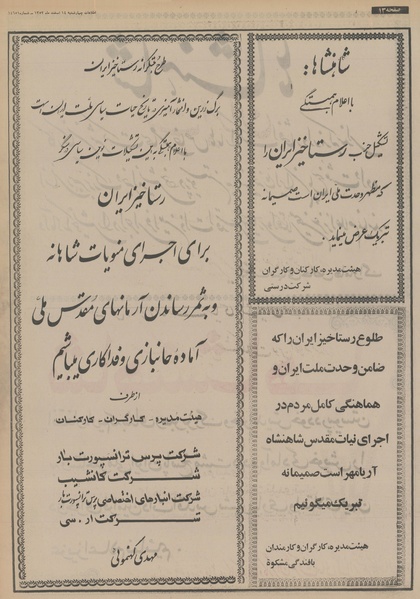 صفحه ۱۳
اطلاعات چهارشنبه ۱۴ اسفند ماه ۱۳۵۳
شاهنشاها:
با اعلام همبستگی
تشکیل حزب رستاخیز ایران را
که مظهر وحدت ملی ایران است صمیمانه
تبریک عرض مینماید .
هیئت مدیره، کارکنان و کارگران
شرکت درستی
طلوع رستاخیز ایران را که
ضامن وحدت ملت ایران و
هماهنگی کامل مردم در
اجرای نیات مقدس شاهنشاه
آریامهر است صمیمانه
تبریک میگوئیم
هیئت مدیره، کارگران و کارمندان
بافندگی مشکوة
طرح مبتکرانه رستاخیز ایران
برگ زرین و افتخار آمیزی در تاریخ حیات سیاسی ملت ایران است
با اعلام همبستگی به این تشکیلات نوین سیاسی
رستاخیز ایران
برای اجرای منویات شاهانه
و به ثمر رساندن آرمانهای مقدس ملی
آماده جانبازی و فداکاری میباشیم
از طرف
هیئت مدیره - کارگران - کارکنان
شرکت پرس ترانسپورت بار
شرکت کانشیپ
شرکت انبارهای اختصاصی پرس ترانسپورت بار
شرکت ار . سی
مهدی